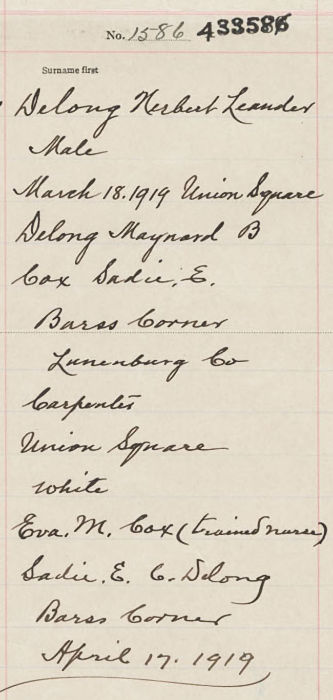 No. 1586 433586
Surname first
Delong Herbert Leander
Male
March 18. 1919 Union Square
Delong Maynard B
Cox Sadie. E.
Barss Corner
Lunenburg Co
Carpenter
Union Square
white
Eva. M. Cox (trained nurse)
Sadie. E. C. Delong
Barss Corner
April 17. 1919